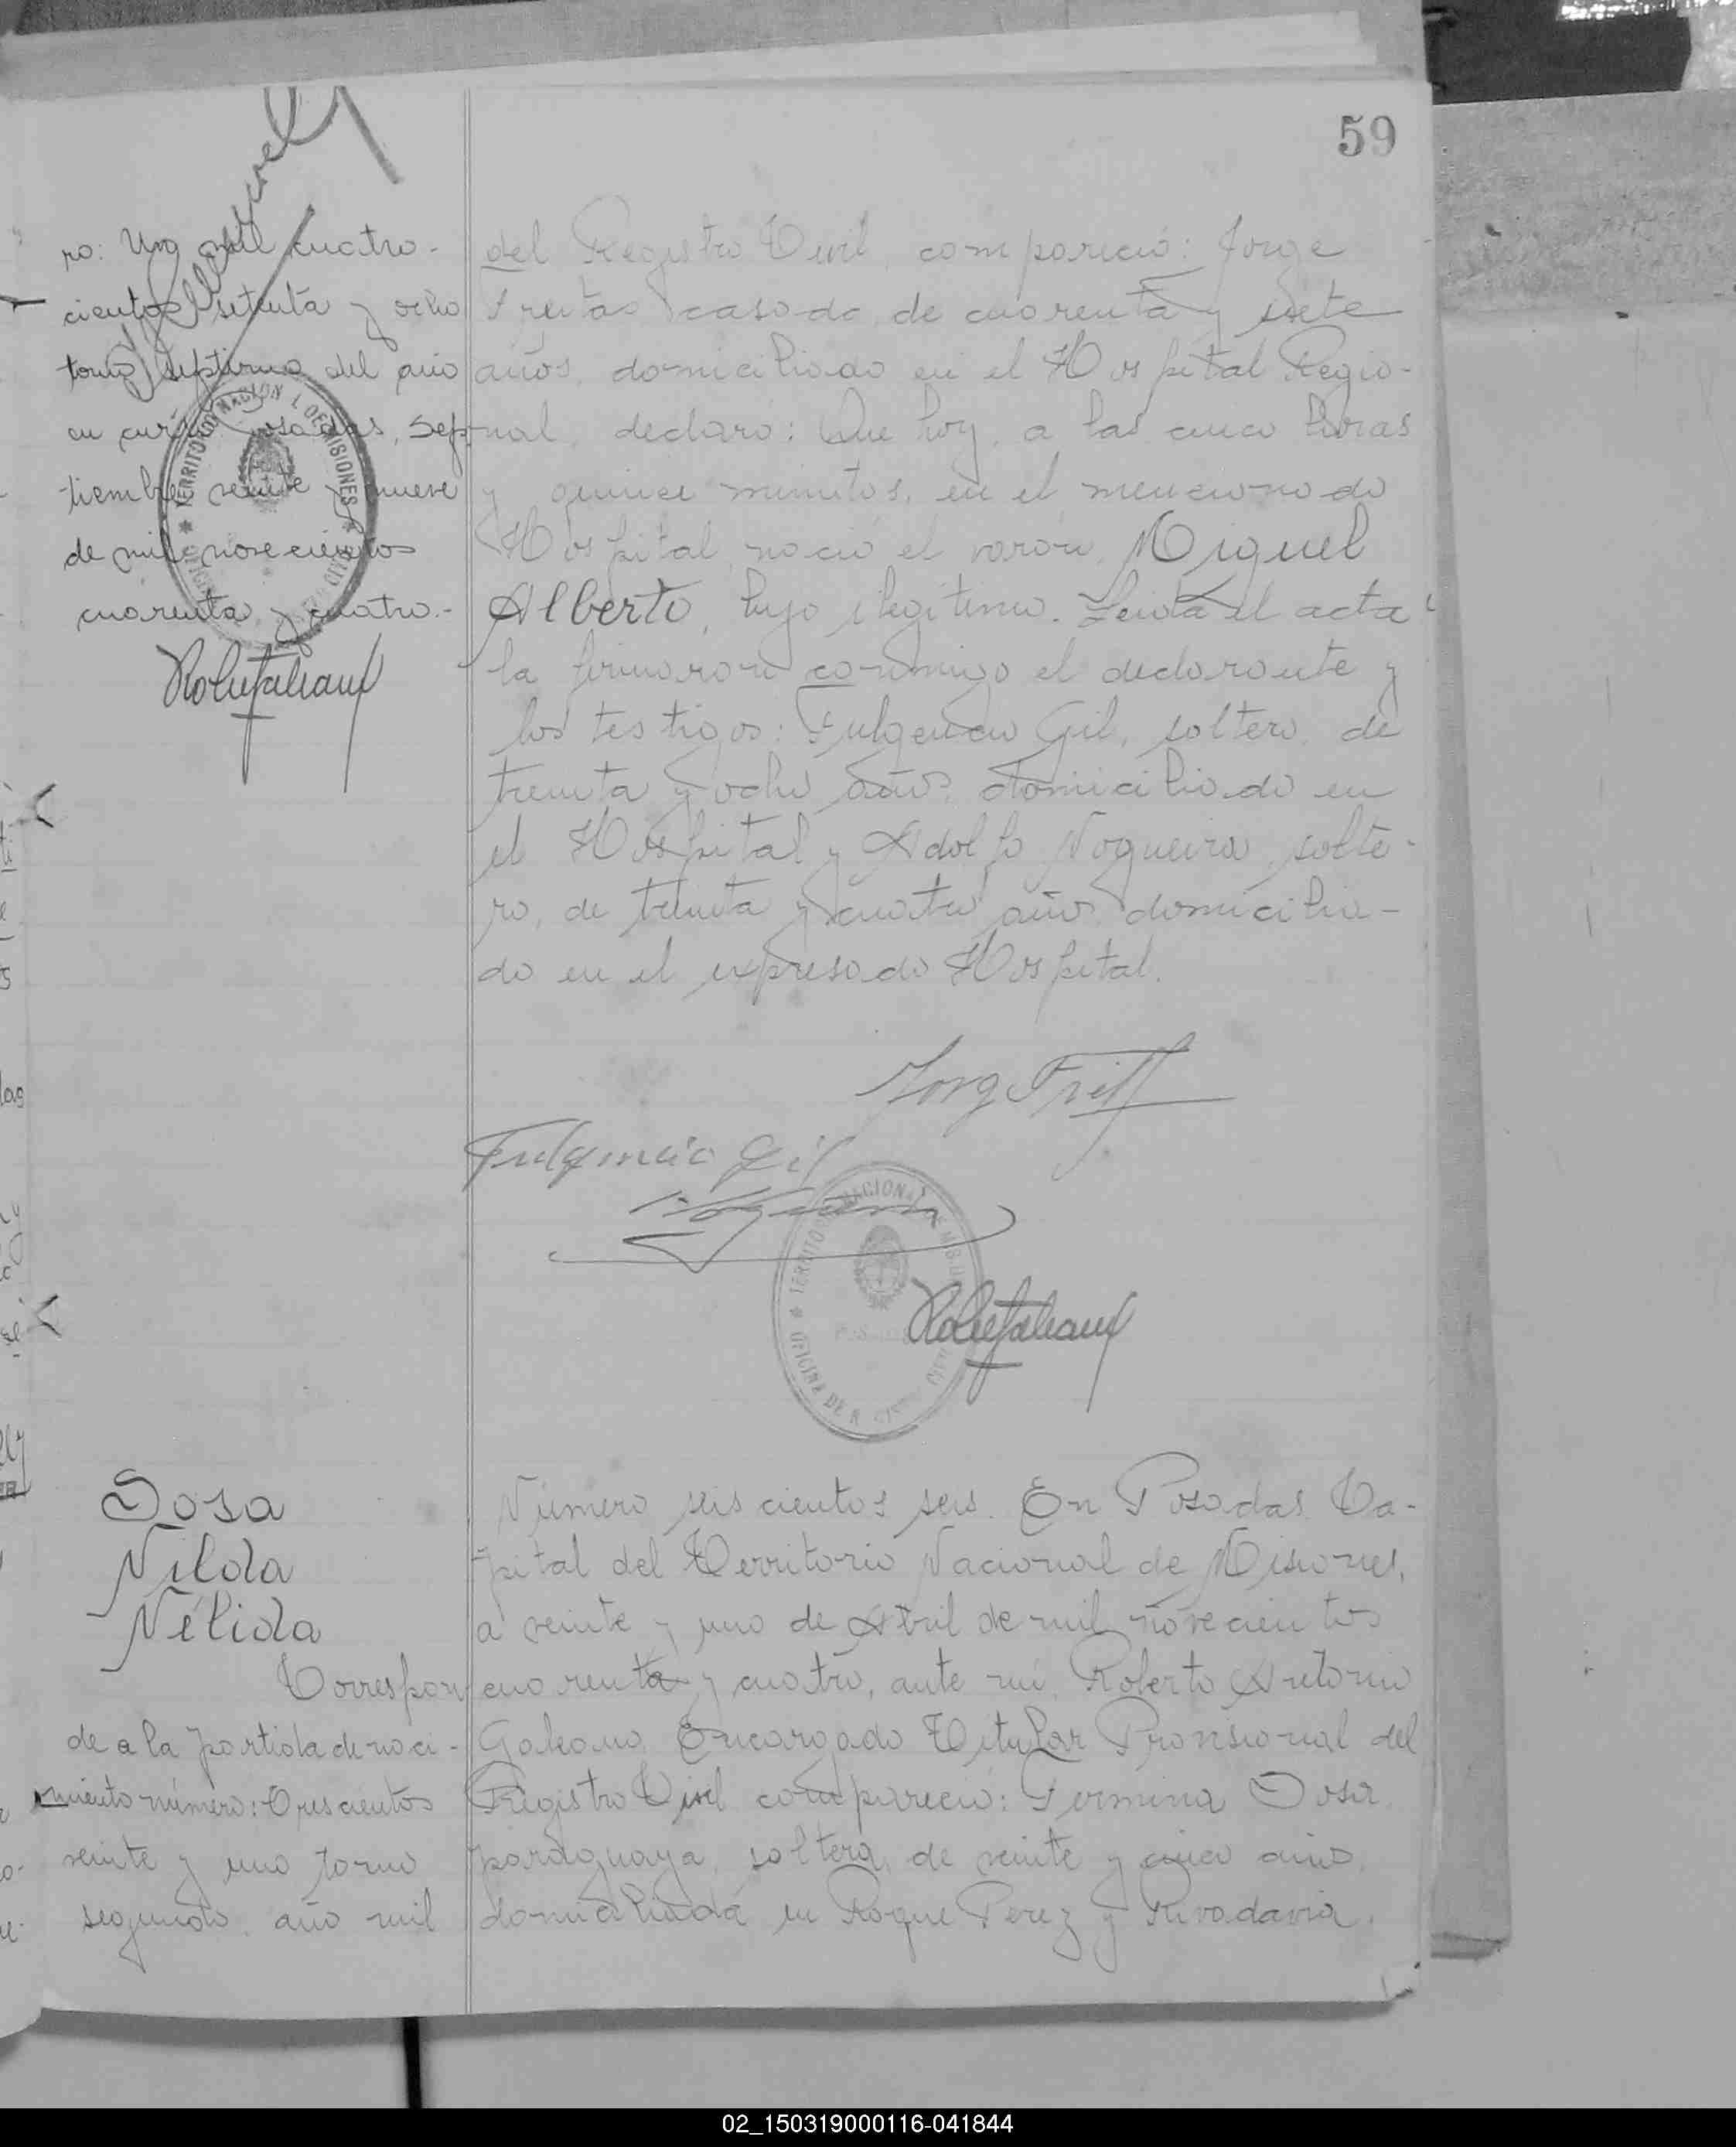 59
ro: Un mil cuatro-
cientos setenta y ocho
tomo septimo del año
en curso Posadas, Sep-
tiembre veinte y nueve
de mil novecientos
cuarenta y cuatro.-
TERRITORIO NACIONAL DE MISIONES
del Registro Civil, compareció: Jorge
casado, de cuarenta y siete
años, domiciliado en el Hospital Regio-
nal, declaró: Que hoy, a las cinco horas
y quince minutos, en el mencionado
Hospital, nació el varón, Miguel
Alberto, hijo ilegitimo. Leida el acta
la firmaron conmigo el declarante y
los testigos: Fulgencio Gil, soltero, de
treinta y ocho años, domiciliado en
el Hospital y Adolfo Nogueira, solte-
ro, de treinta y cuatro años, domicilia-
do en el expresado Hospital.
Fulgencio Gil
TERRITORIO NACIONAL DE MISIONES
OFICINA DE R. CIVIL
Sosa
Nilda
Nélida
Correspon
de a la partida de naci-
miento número: Trescientos
veinte y uno tomo
segundo, año mil
Número seiscientos seis. En Posadas, Ca-
pital del Territorio Nacional de Misiones,
a veinte y uno de Abril de mil novecientos
cuarenta y cuatro, ante mi, Roberto Antonio
Galeano, Encargado Titular Provisional del
Registro Civil compareció: Fermina Sosa,
paraguaya, soltera, de veinte y cinco años,
domiciliada en Roque Perez y Rivadavia,
02_150319000116-041844